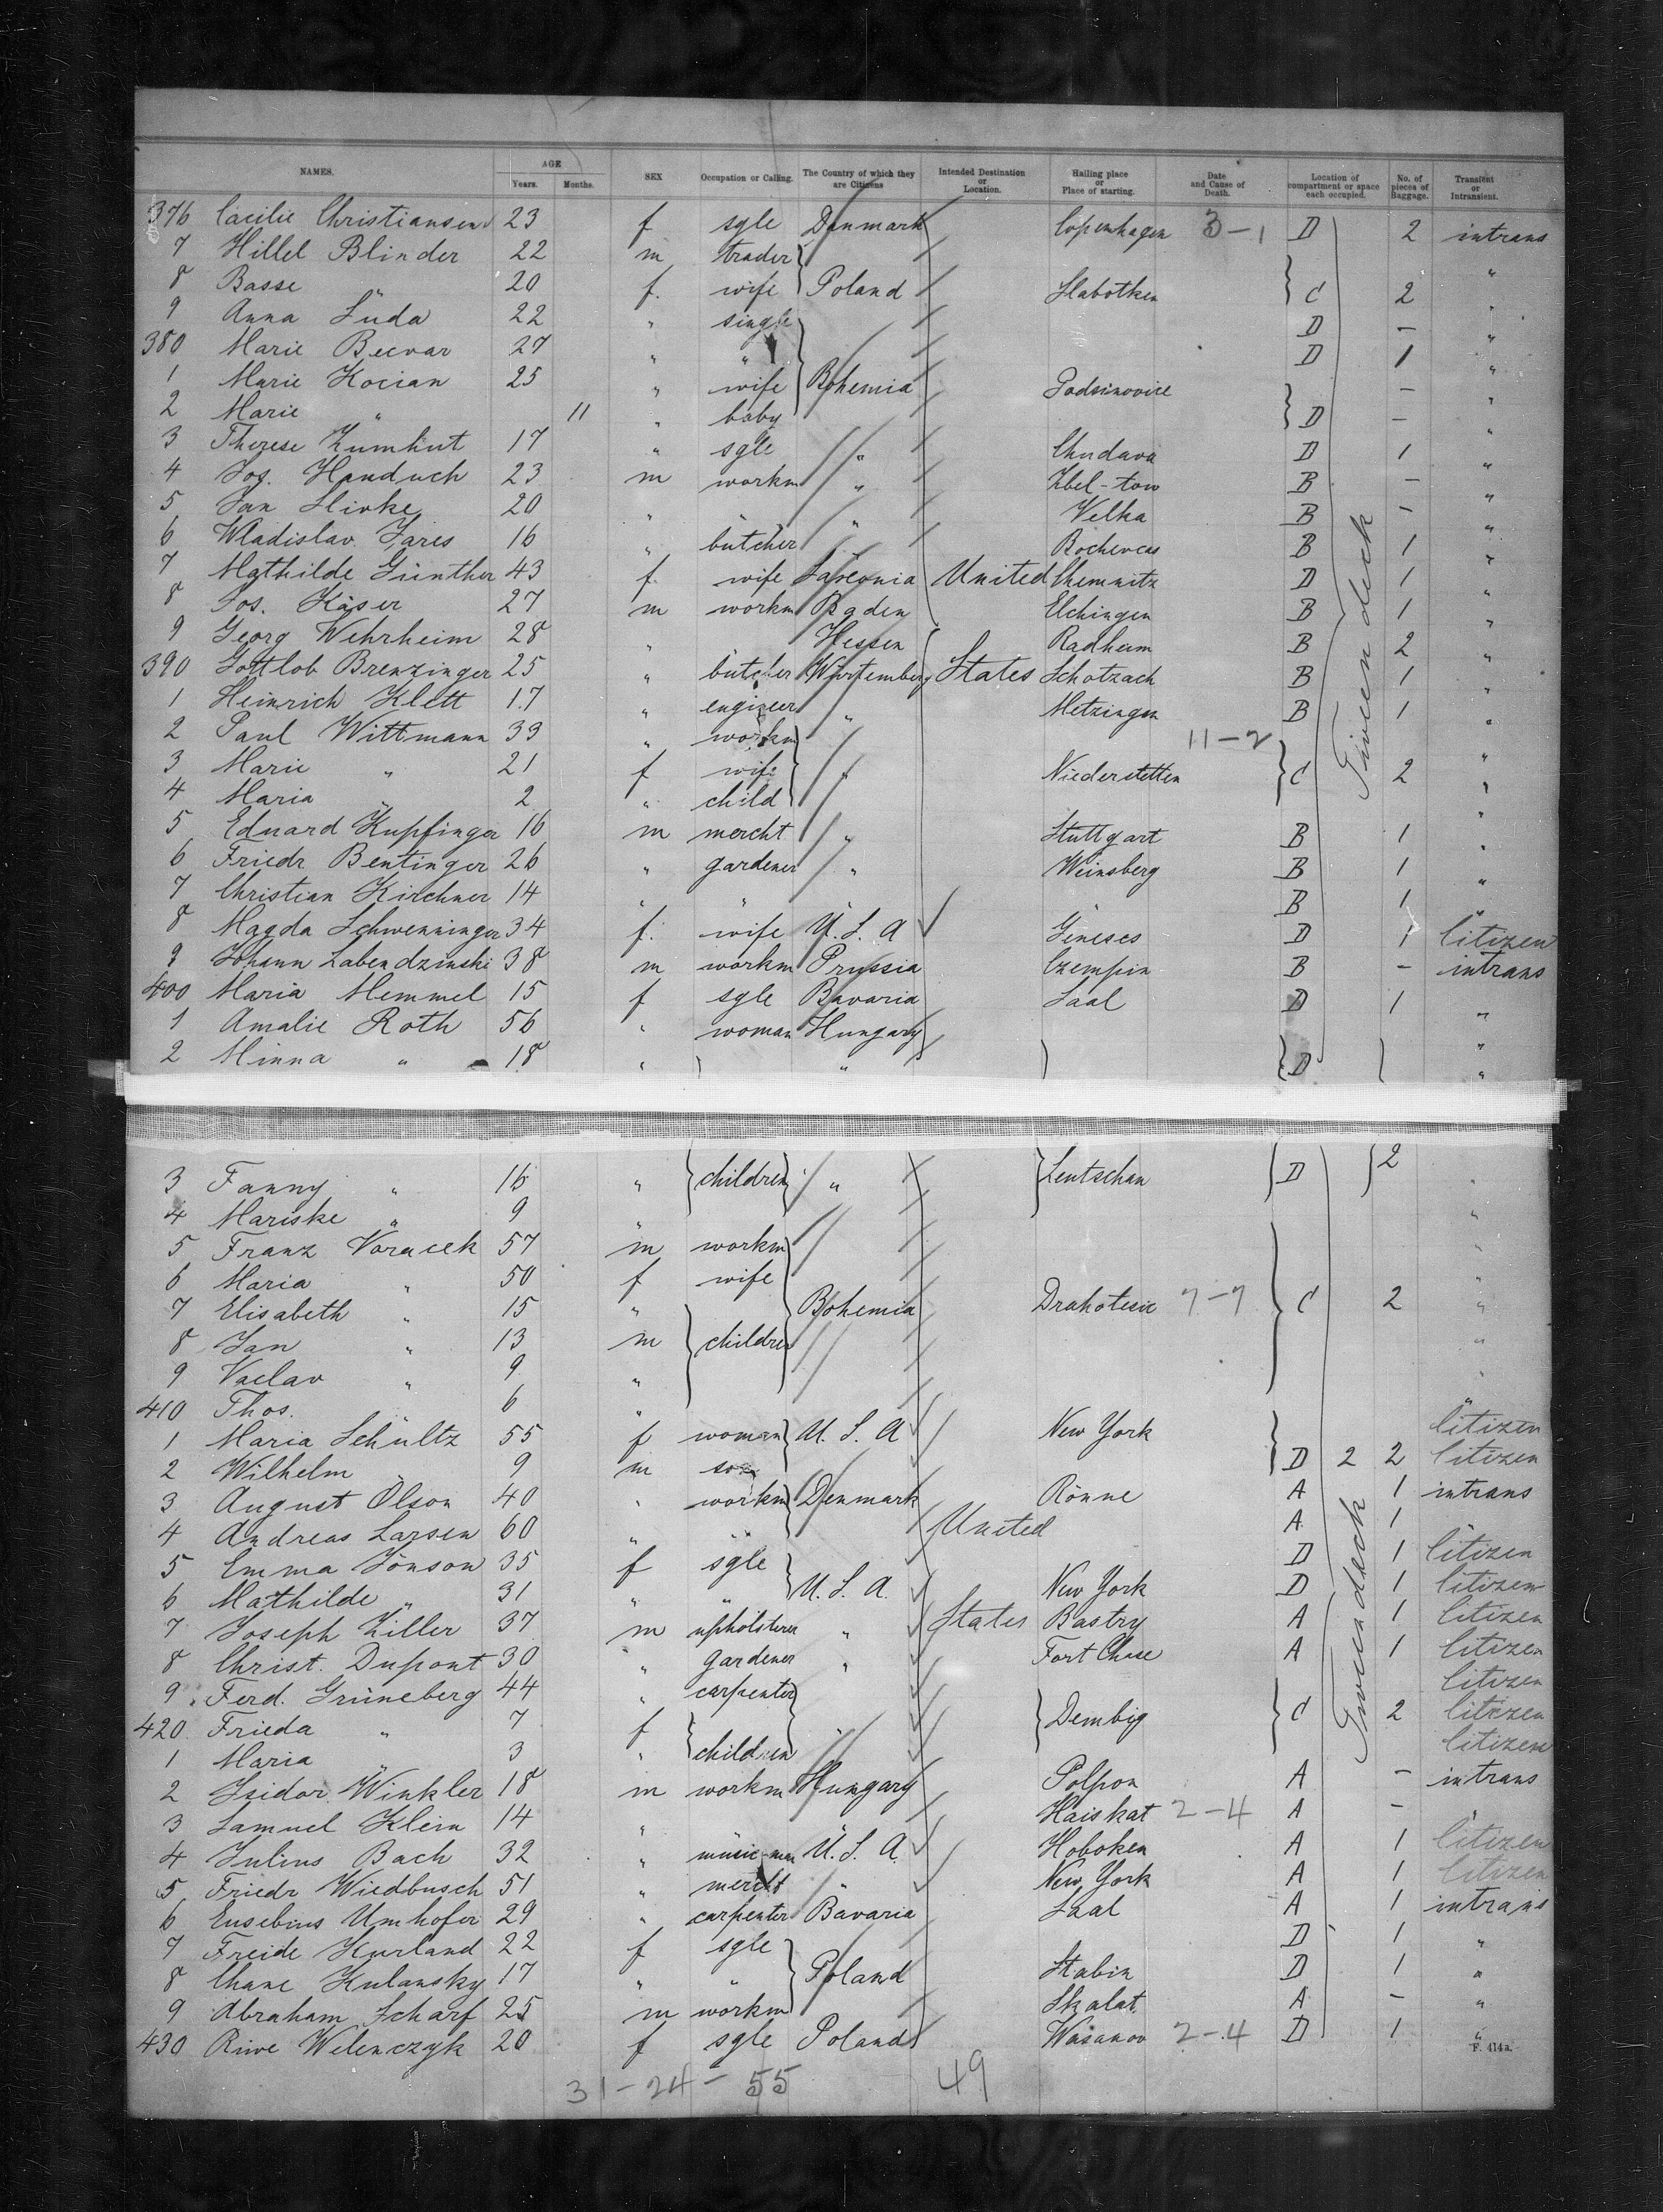 NAMES. AGE Years. Months. SEX Occupation or Calling. The Country of which they are Citizens Intended Destination or Location. Hailing place or Place of starting. Date and Cause of Death. Location of compartment or space each occupied. No. of pieces of Baggage. Transient or Intransient.
376 Cacilie Christiansen 23 f sgle Danmark Copenhagen 3-1 D 2 intrans
7 Hillel Blinder 22 m trader "
8 Basse " 20 f. wife Poland Slabotken C 2 "
9 Anna Luda 22 " single D - "
380 Marie Becvar 27 " " D 1 "
1 Marie Kocian 25 " wife Bohemia Podsinovice - "
2 Marie " 11 " baby D - "
3 Therese Zumhut 17 " sgle " Chudava D 1 "
4 Jos. Handuch 23 m workm " Zbel-tow B - "
5 Jan Slivke 20 " " " Velka B - "
6 Wladislav Jares 16 " butcher Bochevcas B 1 "
7 Mathilde Günther 43 f. wife Saxonia United Chemnitz D 1 "
8 Jos. Käser 27 m workm Baden Elchingen B 1 "
9 Georg Wehrheim 28 " Hessen Radheim B 2 "
390 Gottlob Brenzinger 25 " butcher Würtemberg States Schotzach B 1 "
1 Heinrich Klett 17 " engineer " Metzingen B 1 "
2 Paul Wittmann 33 " workm 11-2 "
3 Marie " 21 f wife " Niederstetten C 2 "
4 Maria " 2 " child "
5 Eduard Kupfinger 16 m mercht " Stuttgart B 1 "
6 Friedr Bentinger 26 " gardener " Weinsberg B 1 "
7 Christian Kirchner 14 " " " " B 1 "
8 Magda Schwenninger 34 f. wife U.S.A Gineses D 1 Citizen
9 Johann Labendzinski 38 m workm Prussia Czempin B - intrans
400 Maria Memmel 15 f sgle Bavaria Saal D 1 "
1 Amalie Roth 56 " woman Hungary "
2 Minna " 18 " " D "
3 Fanny " 16 " children " Leutschau D 2 "
4 Mariske " 9 " "
5 Franz Voracek 57 m workm "
6 Maria " 50 f wife "
7 Elisabeth " 15 " Bohemia Drahotesic 7-7 C 2 "
8 Jan " 13 m children "
9 Vaclav " 9 " "
410 Thos. " 6 " "
1 Maria Schultz 55 f woman U.S.A New York Citizen
2 Wilhelm " 9 m son D 2 2 Citizen
3 August Olson 40 " workm Denmark Rönne A 1 intrans
4 Andreas Larsen 60 " " United " A 1 "
5 Emma Jönson 35 f sgle D 1 Citizen
6 Mathilde " 31 " " U.S.A. New York D 1 Citizen
7 Joseph Ziller 37 m upholsterer " States Bastry A 1 Citizen
8 Christ. Dupont 30 " gardener " Fort Chase A 1 Citizen
9 Ferd. Grüneberg 44 " carpenter Citizen
420 Frieda " 7 f Dembig C 2 Citizen
1 Maria " 3 " children " Citizen
2 Isidor Winkler 18 m workm Hungary Polpon A - intrans
3 Samuel Klein 14 " " " Haiskat 2-4 A - "
4 Julius Bach 32 " music-man U.S.A. Hoboken A 1 Citizen
5 Friedr Wiedbusch 51 " mercht " New York A 1 Citizen
6 Eusebius Umhofer 29 " carpenter Bavaria Saal A 1 intrans
7 Freide Kurland 22 f sgle D 1 "
8 Chane Kulansky 17 " " Poland Stabin D 1 "
9 Abraham Scharf 25 m workm Skalat A - "
430 Riwe Welenczyk 20 f sgle Poland Wasanov 2-4 D 1 "
Tween deck
Tweendeck
F. 414a.
31-24-55 49